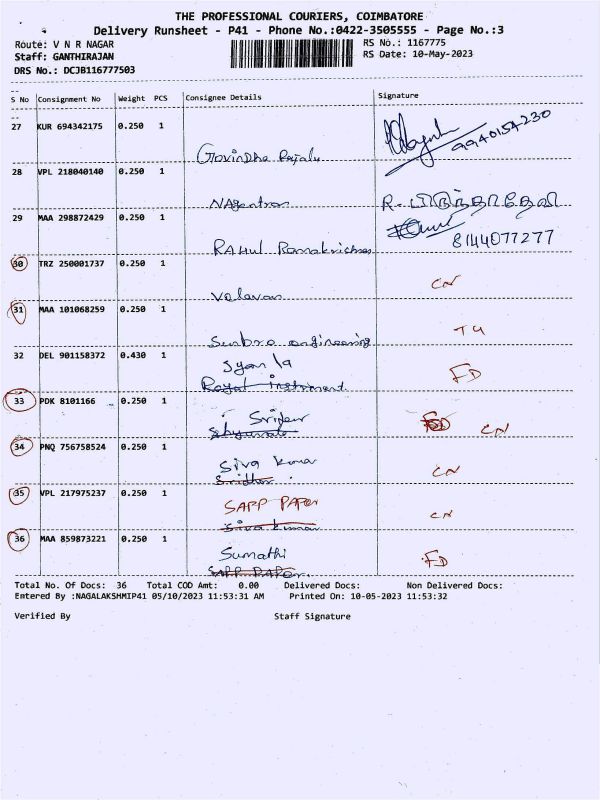 THE PROFESSIONAL COURIERS, COIMBATORE
Delivery Runsheet - P41 - Phone No.:0422-3505555 - Page No.:3
Route: V N R NAGAR RS No.: 1167775
Staff: GANTHIRAJAN RS Date: 10-May-2023
DRS No.: DCJB116777503
S No Consignment No Weight PCS Consignee Details Signature
27 KUR 694342175 0.250 1
Govindha Rajalu 9940154230
28 VPL 218040140 0.250 1
NAgentran R-
29 MAA 298872429 0.250 1
RAHUL Ramakrishnan 8144077277
30 TRZ 250001737 0.250 1
Valavan CN
31 MAA 101068259 0.250 1
engineering
32 DEL 901158372 0.430 1
FD
Royal instrument
33 PDK 8101166 0.250 1
CN
34 PNQ 756758524 0.250 1
Siva Kumar CN
Sridhar
35 VPL 217975237 0.250 1
SAPP PAPer CN
Siva Kumar
36 MAA 859873221 0.250 1
Sumathi FD
SAPP PAPer.
Total No. Of Docs: 36 Total COD Amt: 0.00 Delivered Docs: Non Delivered Docs:
Entered By :NAGALAKSHMIP41 05/10/2023 11:53:31 AM Printed On: 10-05-2023 11:53:32
Verified By Staff Signature